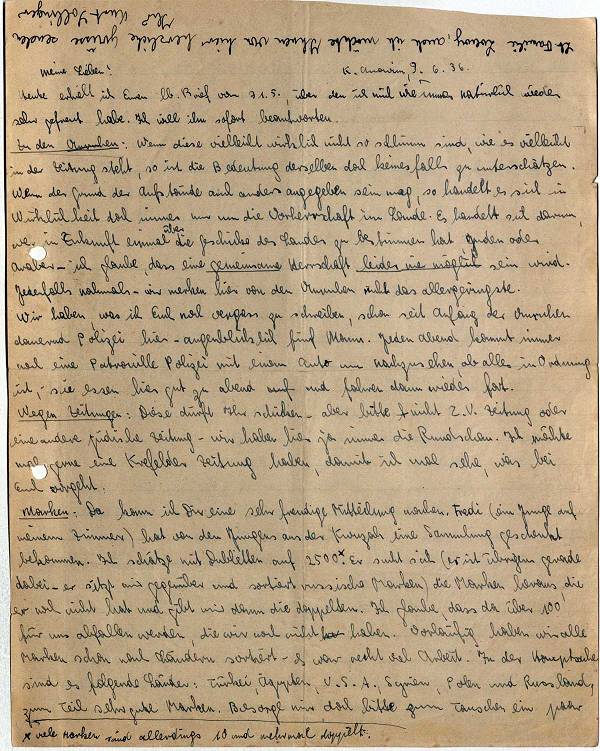 Ihr Familie Zollinger, auch ich möchte Ihnen von hier herzliche Grüsse senden
Ihr Kurt Zollinger
K. Anavim, 9. 6. 36.
Meine Lieben!
Heute erhielt ich Euren lb. Brief vom 31.5., über den ich mich wie immer natürlich wieder
sehr gefreut habe. Ich will ihn sofort beantworten.
Zu den Unruhen: Wenn diese vielleicht wirklich nicht so schlimm sind, wie es vielleicht
in der Zeitung steht, so ist die Bedeutung derselben doch keinesfalls zu unterschätzen.
Wenn der Grund der Aufstände auch anders angegeben sein mag, so handelt es sich in
Wirklichkeit doch immer nur um die Vorherrschaft im Lande. Es handelt sich darum,
wer in Zukunft einmal über die Geschicke des Landes zu bestimmen hat Juden oder
Araber – ich glaube, dass eine gemeinsame Herrschaft leider nie möglich sein wird.
Jedenfalls nochmals – wir merken hier von den Unruhen nicht das allergeringste.
Wir haben, was ich Euch noch vergass zu schreiben, schon seit Anfang der Unruhen
dauernd Polizei hier – augenblicklich fünf Mann. Jeden Abend kommt immer
noch eine Patrouille Polizei mit einem Auto um nachzusehen, ob alles in Ordnung
ist, – sie essen hier gut zu abend und fahren dann wieder fort.
Wegen Zeitungen: Diese dürft Ihr schicken – aber bitte nicht C.V. Zeitung oder
eine andere jüdische Zeitung – wir haben hier ja immer die Rundschau. Ich möchte
mal gerne eine Krefelder Zeitung haben, damit ich mal sehe, was bei
Euch vorgeht.
Marken: Da kann ich Dir eine sehr freudige Mitteilung machen. Fredi (ein Junge auf
meinem Zimmer) hat von den Jungens aus der Kwuzah eine Sammlung geschenkt
bekommen. Ich schätze mit Dubletten auf 2500.x Er sucht sich (er ist übrigens gerade
dabei – er sitzt mir gegenüber und sortiert russische Marken) die Marken heraus, die
er noch nicht hat und gibt mir dann die doppelten. Ich glaube, dass da über 100
für uns abfallen werden, die wir noch nicht haben. Vorläufig haben wir alle
Marken schon nach Ländern sortiert – es war recht viel Arbeit. In der Hauptsache
sind es folgende Länder: Türkei, Ägypten, U.S.A. Syrien, Polen und Russland,
zum Teil sehr gute Marken. Besorge mir doch bitte zum Tauschen ein paar
x viele Marken sind allerdings 10 und mehrmal doppelt.